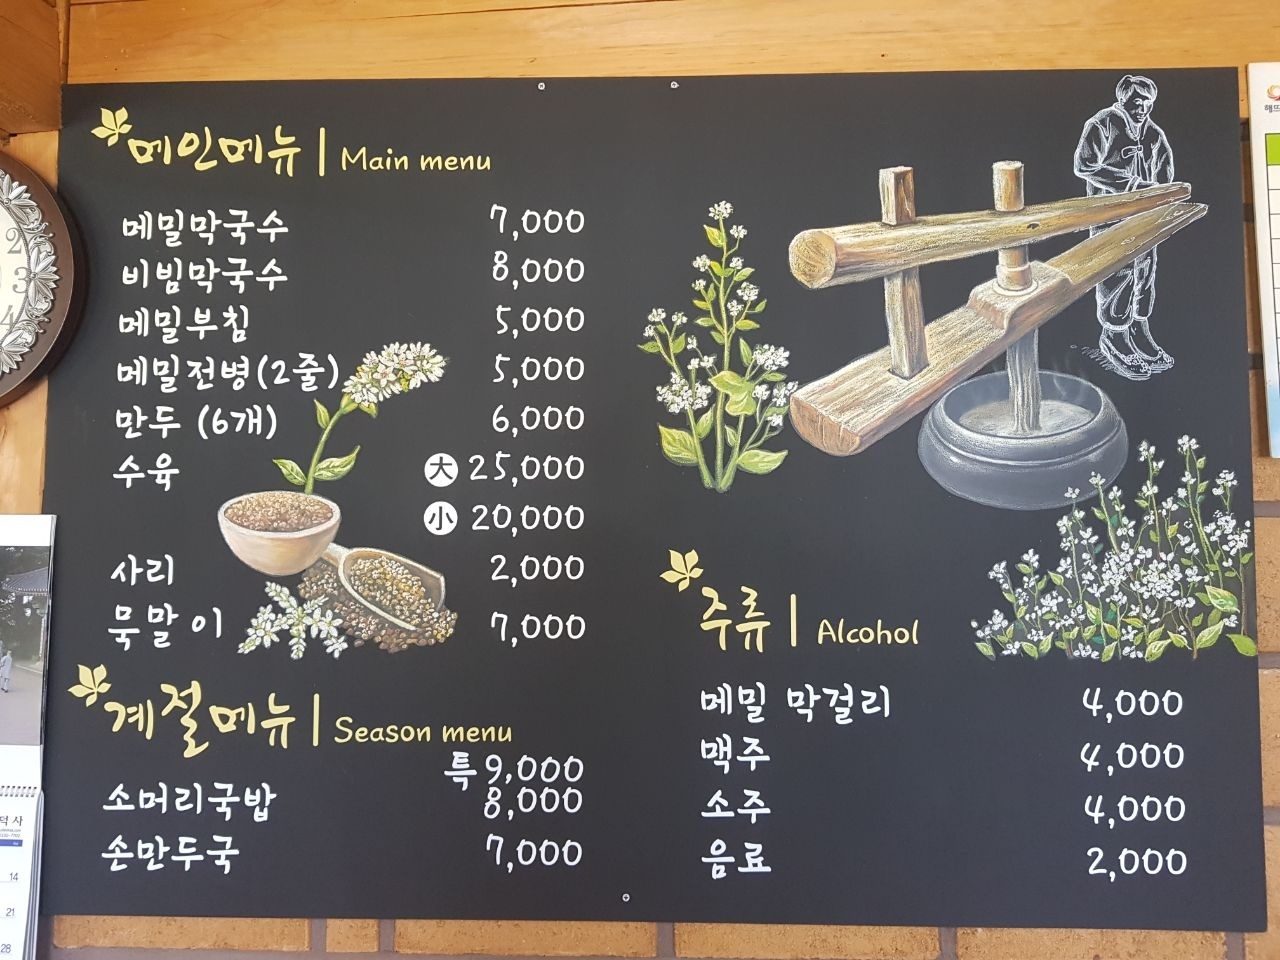 메인메뉴 | Main menu
메밀막국수 7,000
비빔막국수 8,000
메밀부침 5,000
메밀전병(2줄) 5,000
만두 (6개) 6,000
수육 大 25,000
小 20,000
사리 2,000
묵말이 7,000
계절메뉴 | Season menu
특 9,000
소머리국밥 8,000
손만두국 7,000
주류 | Alcohol
메밀 막걸리 4,000
맥주 4,000
소주 4,000
음료 2,000
2
3
4
덕사
14
21
28
해뜨